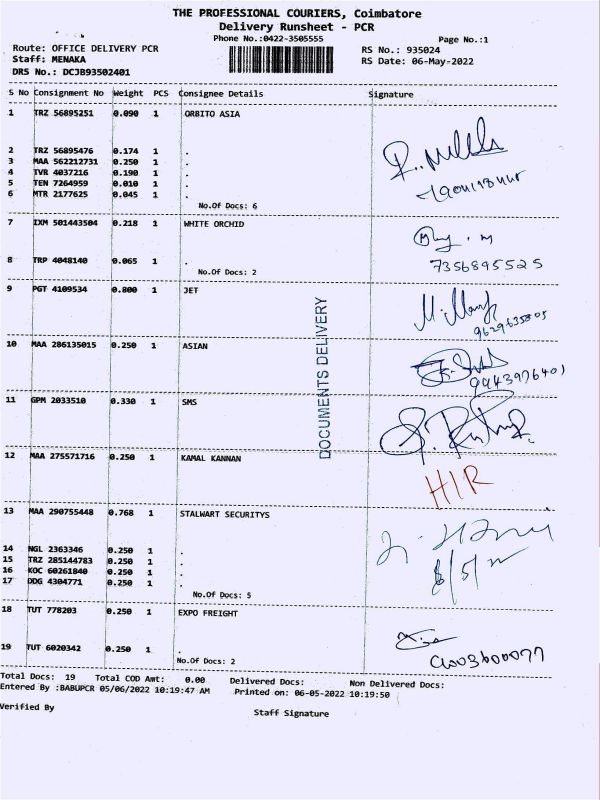 THE PROFESSIONAL COURIERS, Coimbatore
Delivery Runsheet - PCR
Phone No.:0422-3505555
Page No.:1
Route: OFFICE DELIVERY PCR
RS No.: 935024
Staff: MENAKA
RS Date: 06-May-2022
DRS No.: DCJB93502401
S No Consignment No Weight PCS Consignee Details Signature
1 TRZ 56895251 0.090 1 ORBITO ASIA
2 TRZ 56895476 0.174 1 .
3 MAA 562212731 0.250 1 .
4 TVR 4037216 0.190 1 .
5 TEN 7264959 0.010 1 .
6 MTR 2177625 0.045 1 .
No.Of Docs: 6
7 IXM 501443504 0.218 1 WHITE ORCHID
8 TRP 4048140 0.065 1 .
7356895525
No.Of Docs: 2
9 PGT 4109534 0.800 1 JET
9629635805
DOCUMENTS DELIVERY
10 MAA 286135015 0.250 1 ASIAN
9443976401
11 GPM 2033510 0.330 1 SMS
12 MAA 275571716 0.250 1 KAMAL KANNAN
HIR
13 MAA 290755448 0.768 1 STALWART SECURITYS
14 NGL 2363346 0.250 1 .
15 TRZ 285144783 0.250 1 .
16 KOC 60261840 0.250 1 .
17 ODG 4304771 0.250 1 .
No.Of Docs: 5
18 TUT 778203 0.250 1 EXPO FREIGHT
19 TUT 6020342 0.250 1 .
No.Of Docs: 2
Total Docs: 19 Total COD Amt: 0.00 Delivered Docs: Non Delivered Docs:
Entered By :BABUPCR 05/06/2022 10:19:47 AM Printed on: 06-05-2022 10:19:50
Verified By
Staff Signature